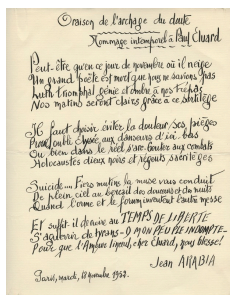 Oraison de l'archage du doute
Hommage intemporel à Paul Eluard
Peut-être qu'en ce jour de novembre où il neige
Un grand poète est mort que nous ne savions pas
Luth triomphal génie et ombre à nos trépas
Nos matins seront clairs grâce à ce sortilège
Il faut choisir éviter la douleur, ses pièges
Pour l'oubli aux d'ici-bas
Ou bien dans le réel s'arc-bouter aux combats
Holocaustes dieux noirs et régents sacrilèges
Suicide... Fiers mutins la muse vous conduit
De plein ciel au berçail des démons et du nuits
Quand l'orme et le forum inventent l'autre messe
Et suffit il de rire au TEMPS DE LIBERTE
S'aguerrir de tyrans - O MON PEUPLE INDOMPTE -
Pour que l'Amour , chez Eluard, nous blesse!
Jean ARABIA
Paris, mardi, 18 novembre 1952.